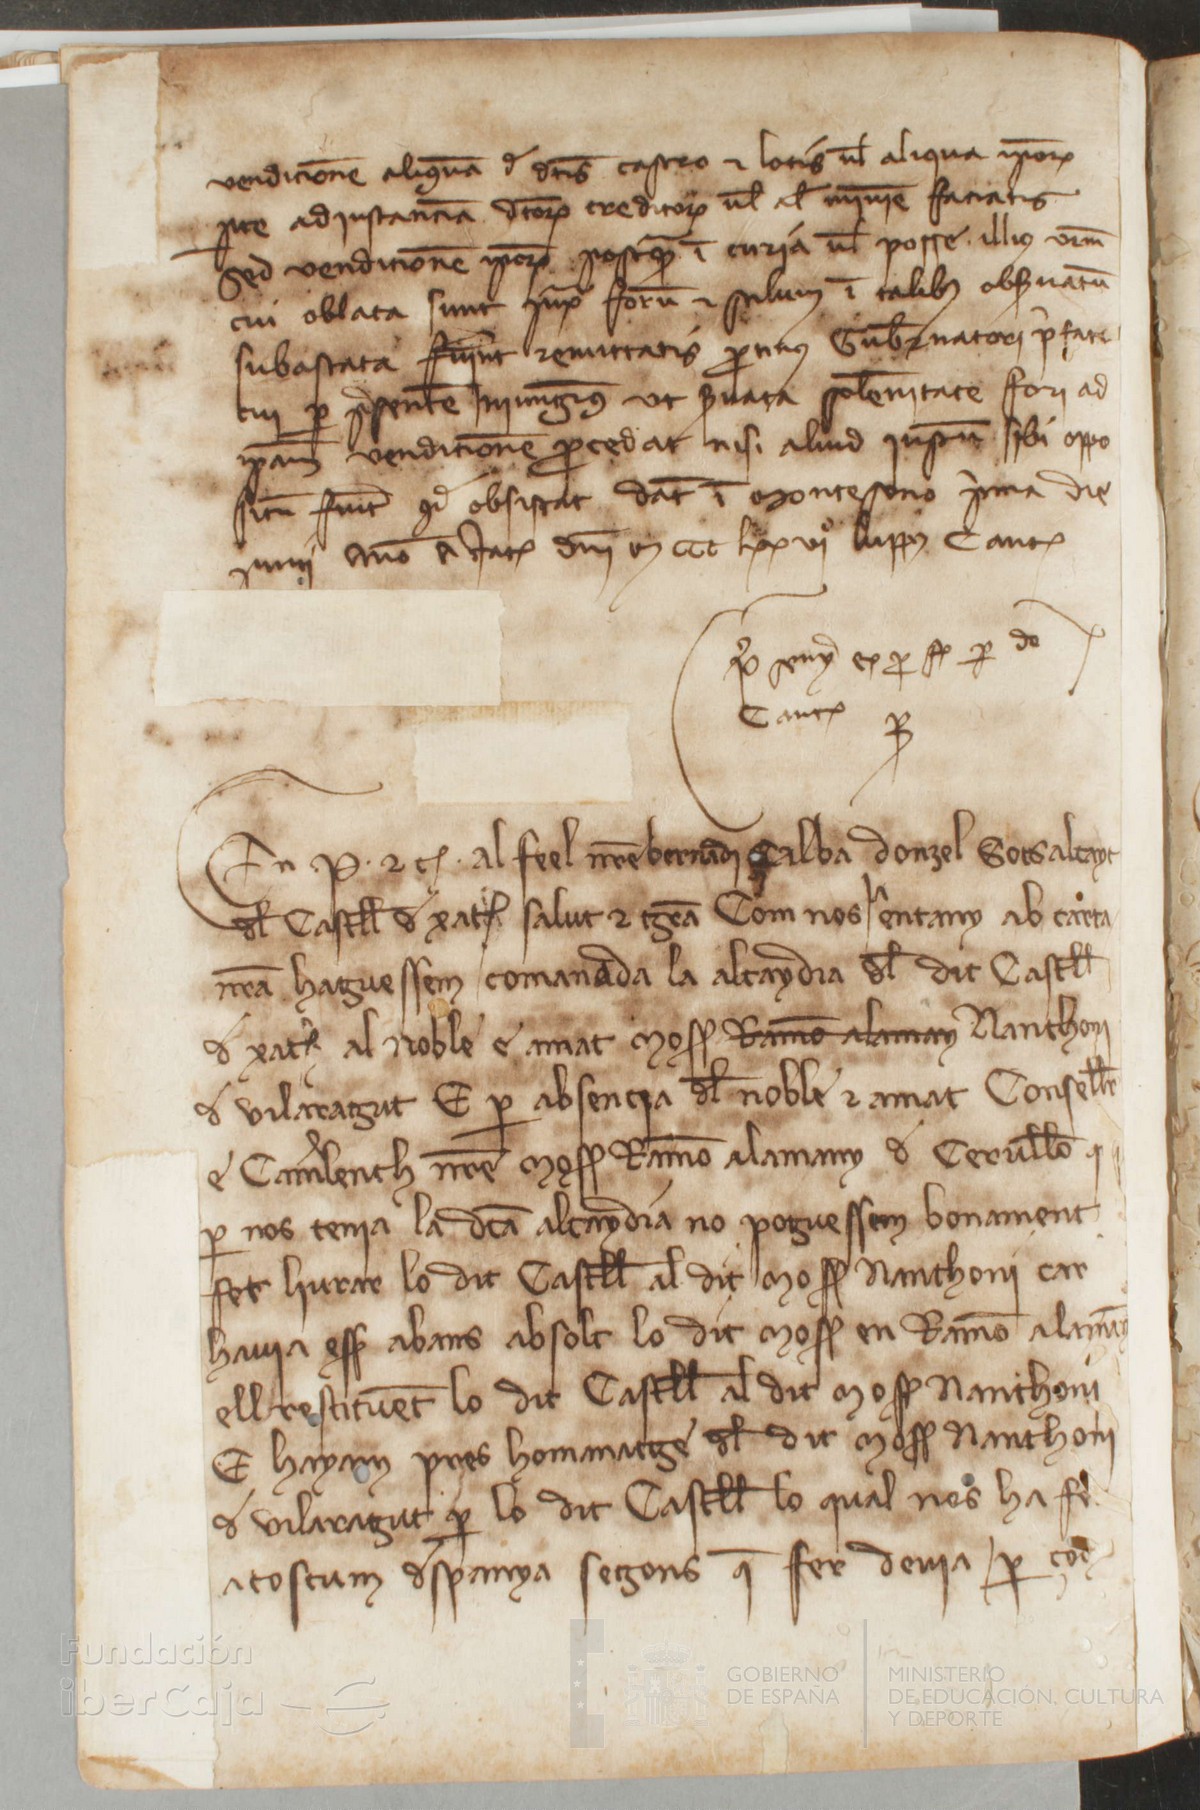 vendicione aliqua d dtis castro & locis ul aliqua ipor
adinstancia dtor creditor ul al minime faciatis
Sed vendicione ipor postq i curia ul posse illius urm
cui oblata sunt foru & i talib obsuatu
subastata fuint remittatis ptinus Gubnatori pfato
cui p psente iniungius ut suata solenitate fori ad
ipam vendicione pcedat nisi aliud iustu sibi oppo
situ fuit qd obsistat dat i Montessono prima die
junii Ano a Nat dni M CCC lxxvi luppus Canc

Canc
P
En P. & c. al feel nre bernat Calba donzel Sotsalcayt
dl Castll d xat salut & gra Com nos entany ab carta
nra haguessem comanada la alcaydia dl dit Castll
d xat al noble e amat Moss Ramo alamay Nanthoni
d vilaragut E p absencia dl noble & amat Consellr
e Camlench nre Moss Ramo alamany d Cervllo q
p nos tenia la dca alcaydia no poguessem bonament
fer liurar lo dit Castll al dit Moss Nanthoni car
havia ess abans absolt lo dit Moss en Ramo alamay
ell restituent lo dit Castll al dit Moss Nanthoni
E hayam pres homanatge dl dit Moss Nanthoni
d vilaragut p lo dit Castll lo qual nos ha fe
a costum dspanya segons q fer devia p ço
Fundación
iberCaja
GOBIERNO
DE ESPAÑA
MINISTERIO
DE EDUCACIÓN, CULTURA
Y DEPORTE